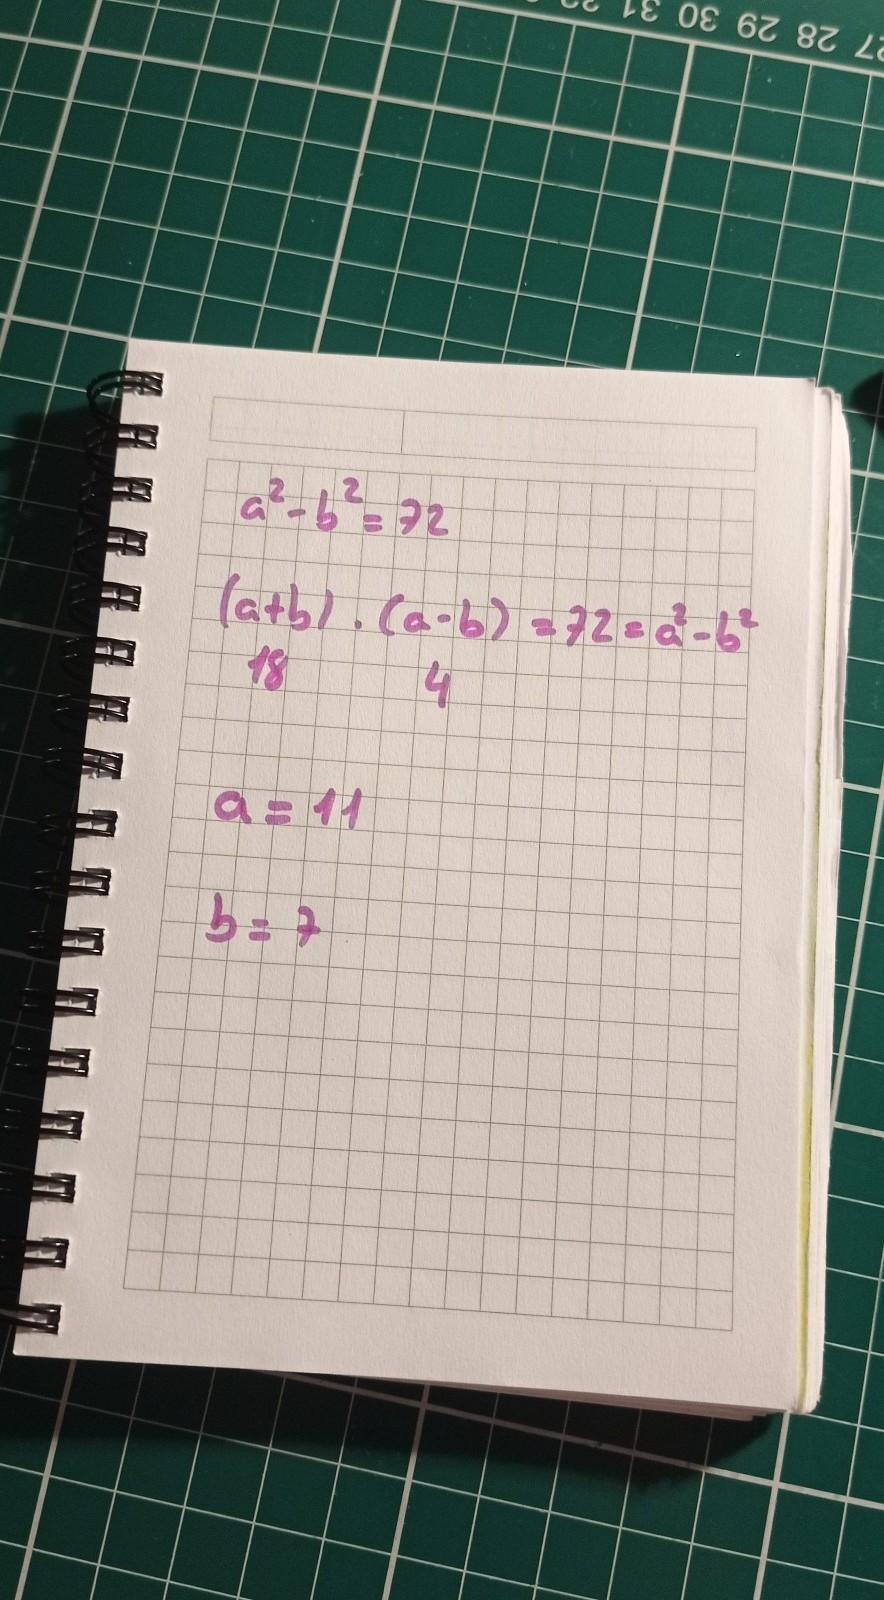 27 28 29 30 31 32
a²-b²=72
(a+b).(a-b)=72=a²-b²
18 4
a=11
b=7